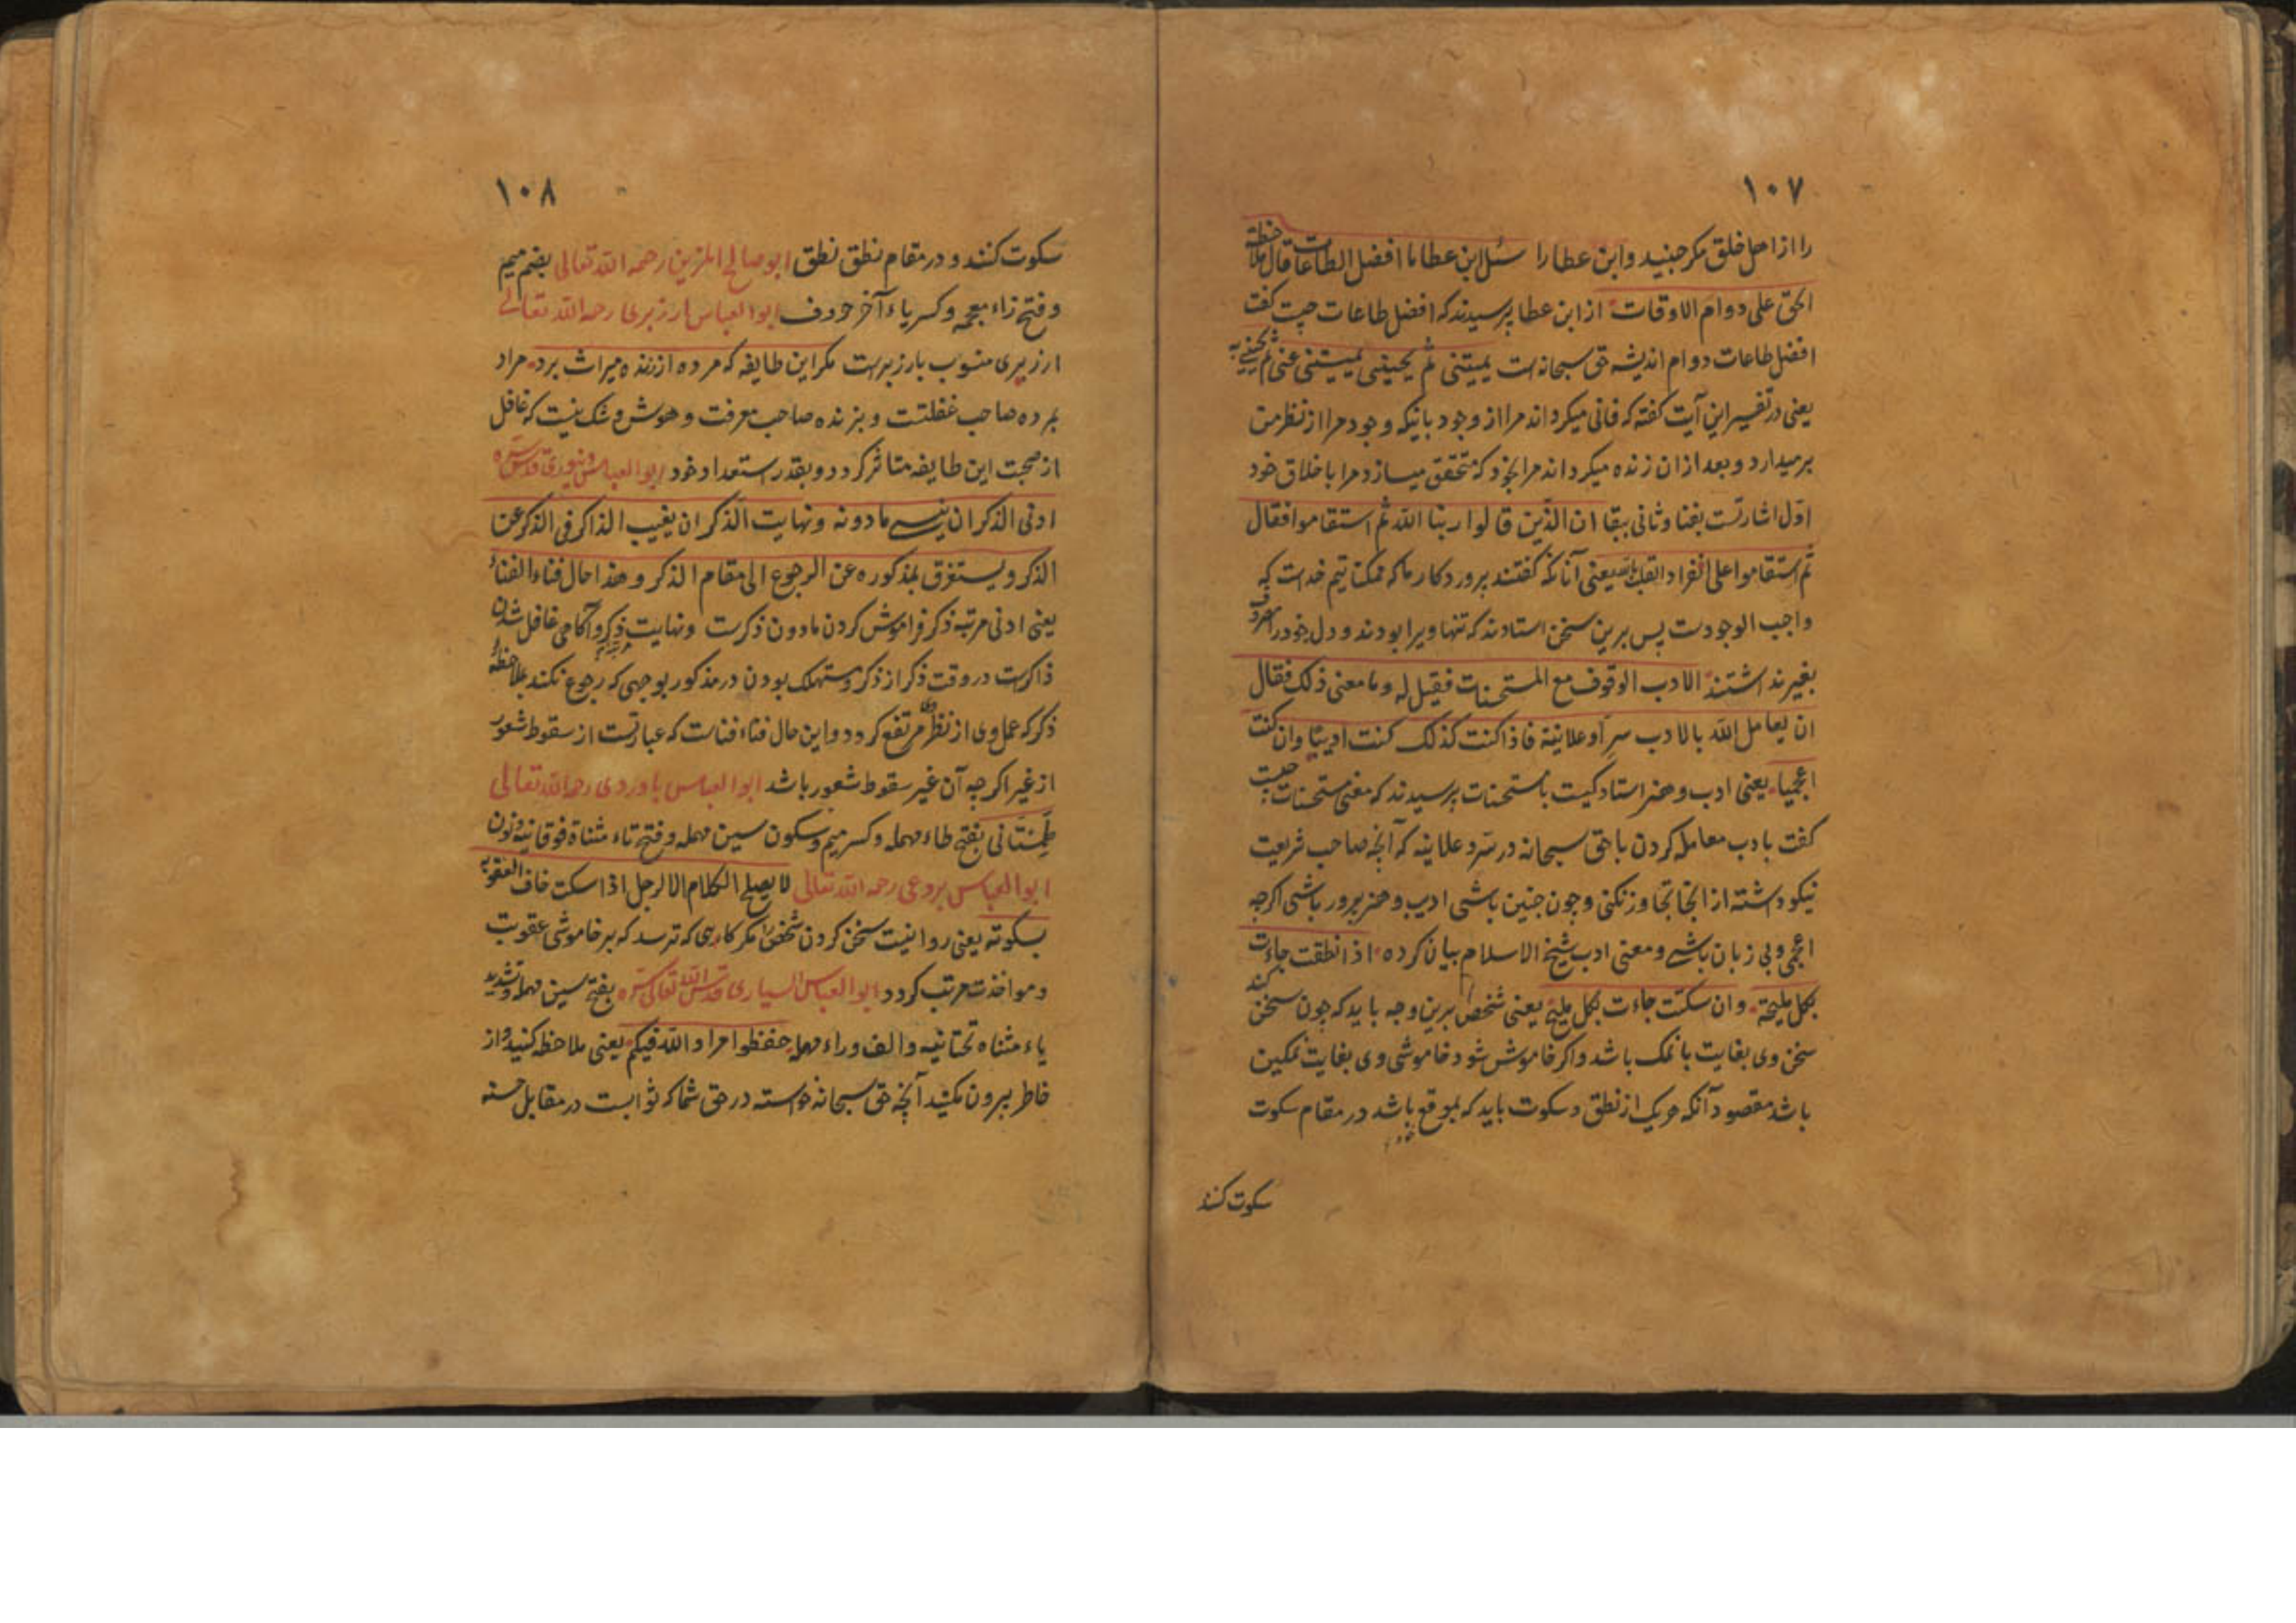 ١٠٧
را از اهل خلق مکر جنید و ابن عطا را سئل ابن عطا ما افضل الطاعات قال ملاحظة
الحق علی دوام الاوقات از ابن عطا پرسیدند که افضل طاعات چیست کفت
افضل طاعات دوام اندیشه حق سبحانه است یمیتنی ثم یحیینی یمیتنی عنی ثم یحیینی به
یعنی در تفسیر این آیت کفته که فانی میکرداند مرا از وجود بانیکه وجود مرا از نظر من
برمیدارد و بعد ازان زنده میکرداند مرا بخود که متحقق میسازد مرا باخلاق خود
اول اشارتست بفنا و ثانی ببقا ان الذین قالوا ربنا الله ثم استقاموا فقال
ثم استقاموا علی انفراد القلب بالله یعنی آنانکه کفتند پروردکار ما که ممکناتیم خداست که
واجب الوجودست پس برین سخن استادند که تنها ویرا بودند و دل خود را مصروف
بغیر نداشتند الادب الوقوف مع المستحسنات فقیل له و ما معنی ذلک فقال
ان یعامل الله بالادب سرا و علانیة فاذا کنت کذلک کنت ادیبا وان کنت
اعجمیا یعنی ادب و هنر استادکیست بامستحسنات پرسیدند که معنی مستحسنات چیست
کفت بادب معامله کردن باحق سبحانه در سر و علانیه که آنچه صاحب شریعت
نیکو داشته از انجا تجاوز نکنی و چون چنین باشی ادیب و هنرپرور باشی اکرچه
اعجمی و بی زبان باشی و معنی ادب شیخ الاسلام بیان کرده اذا نطقت جاءت
بکل ملیحة وان سکتت جاءت بکل ملیح یعنی شخص برین وجه باید که چون سخن کند
سخن وی بغایت بانمک باشد و اکر خاموش شود خاموشی وی بغایت نمکین
باشد مقصود آنکه هریک از نطق و سکوت باید که بموقع باشد در مقام سکوت
سکوت کنند
١٠٨
سکوت کنند و در مقام نطق نطق ابو صالح المزین رحمه الله تعالی بضم میم
و فتح زاء معجمه و کسر یاء آخر حروف ابو العباس ارزیزی رحمه الله تعالی
ارزیزی منسوب بارزیزست مکر این طایفه که مرده از زنده میراث برد مراد
بمرده صاحب غفلتست و بزنده صاحب معرفت و هوش و شک نیست که غافل
از صحبت این طایفه متاثر کردد و بقدر استعداد خود ابو العباس دینوری قدس سره
ادنی الذکر ان ینسی ما دونه و نهایت الذکر ان یغیب الذاکر فی الذکر عن
الذکر و یستغرق بمذکوره عن الرجوع الی مقام الذکر و هذا حال فناء الفناء
یعنی ادنی مرتبه ذکر فراموش کردن مادون ذکرست و نهایت ذکر و آکاهی غافل شدن
ذاکرست در وقت ذکر از ذکر و مستهلک بودن در مذکور بوجهی که رجوع نکند بملاحظه
ذکر که عمل وی از نظر وی مرتفع کردد و این حال فناء فناست که عبارتست از سقوط شعور
از غیر اکرچه آن غیر سقوط شعور باشد ابو العباس باوردی رحمه الله تعالی
طمستانی بفتح طاء مهمله و کسر میم و سکون سین مهمله و فتح تاء مثناة فوقانیه و نون
ابو العباس بردعی رحمه الله تعالی لا یصلح الکلام الا لرجل اذا سکت خاف العقوبة
بسکوته یعنی روا نیست سخن کردن شخصی را مکر کاهی که ترسد که بر خاموشی عقوبت
و مواخذت مرتب کردد ابو العباس السیاری قدس الله تعالی سره بفتح سین مهمله و تشدید
یاء مثناه تحتانیه و الف و راء مهمله حفظوا مراد الله فیکم یعنی ملاحظه کنید و از
خاطر بیرون مکنید آنچه حق سبحانه خواسته در حق شما که ثوابست در مقابل حسنه